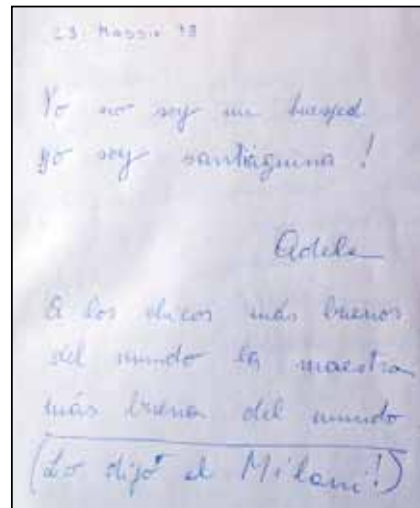 23. Maggio 98
Yo no soy un huesped
yo soy santiaguina!
Adele
A los chicos más buenos
del mundo la maestra
más buena del mundo
(Lo dijo el Milani!)